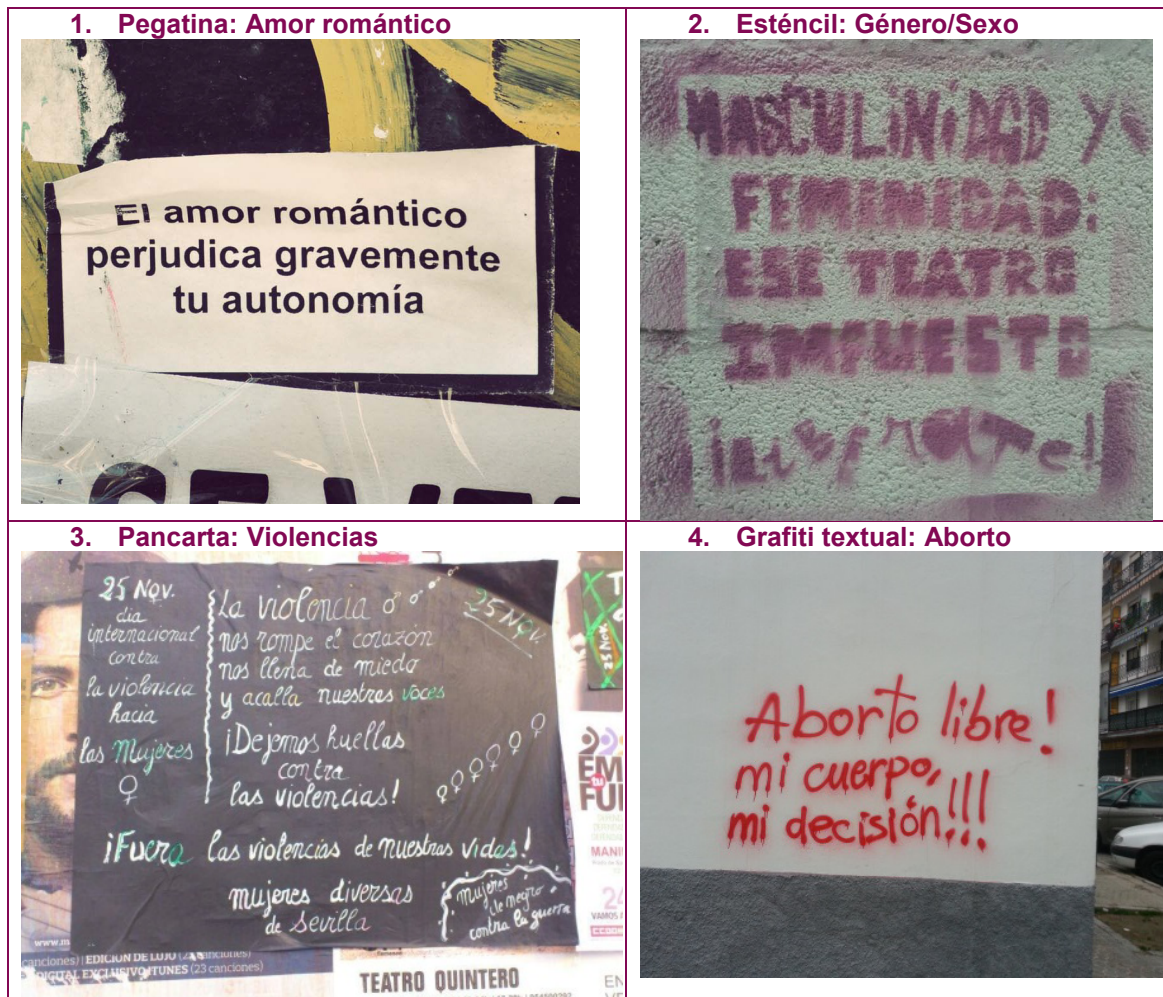 1. Pegatina: Amor romántico
El amor romántico
perjudica gravemente
tu autonomía
2. Esténcil: Género/Sexo
MASCULINIDAD Y
FEMINIDAD:
ESE TEATRO
IMPUESTO
3. Pancarta: Violencias
25 Nov.
dia
internacional
contra
la violencia
hacia
las Mujeres
La violencia
nos rompe el corazón
nos llena de miedo
y acalla nuestras voces
¡Dejemos huellas
contra
las violencias!
25 Nov.
¡Fuera las violencias de nuestras vidas!
mujeres diversas
de Sevilla
mujeres
de negro
contra la guerra
25 Nov.
EM
tu
FU
MANI
24
VAMOS
CCOO
www.m
canciones) | EDICIÓN DE LUJO (
DIGITAL EXCLUSIVO ITUNES (23 canciones)
TEATRO QUINTERO
EN
4. Grafiti textual: Aborto
Aborto libre!
mi cuerpo,
mi decisión!!!